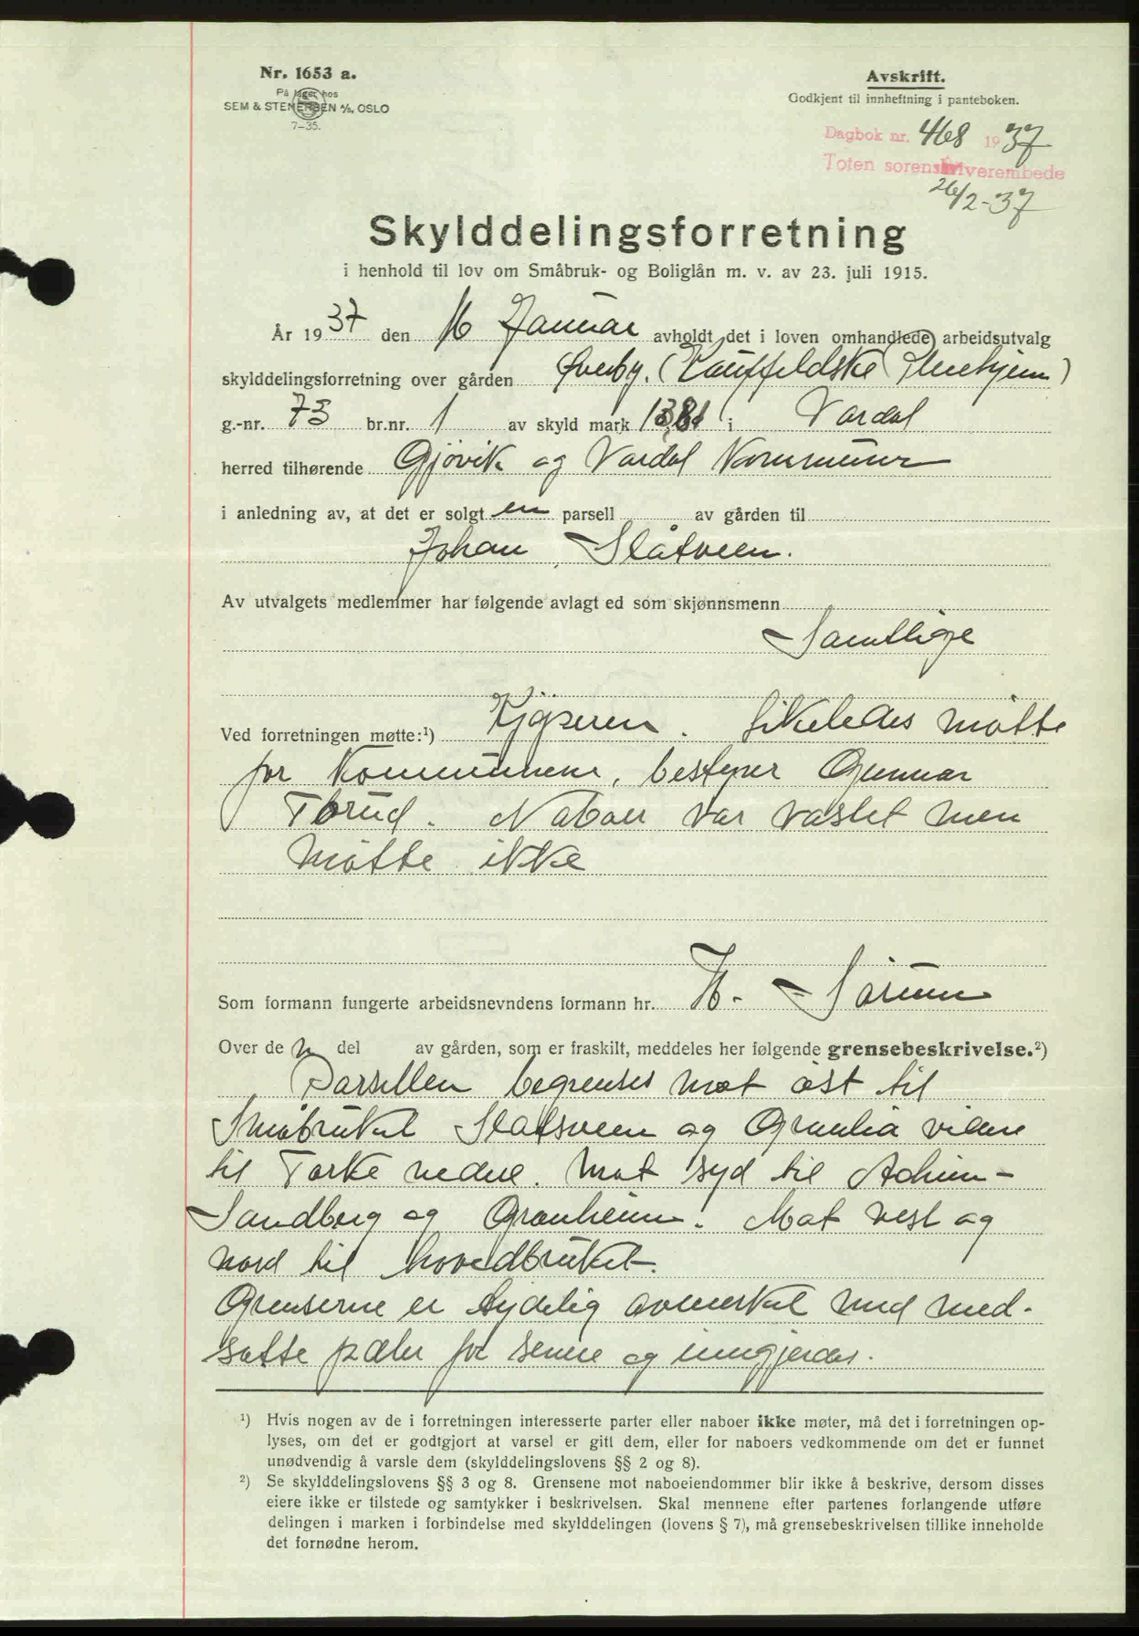 Nr. 1653 a.
På lager hos
SEM & STENERSEN A/S, OSLO
7-35.
Avskrift.
Godkjent til innheftning i panteboken.
Dagbok nr. 468 1937
Toten sorenskriverembede
26/2-37
Skylddelingsforretning
i henhold til lov om Småbruk- og Boliglån m. v. av 23. juli 1915.
År 1937 den 16 Januar avholdt det i loven omhandlede arbeidsutvalg
skylddelingsforretning over gården Øverby. (Kauffeldske
g.-nr. 73 br.nr. 1 av skyld mark i Vardal
herred tilhørende Gjøvik og Vardal Kommuner
i anledning av, at det er solgt en parsell av gården til
Johan Slåtveen.
Av utvalgets medlemmer har følgende avlagt ed som skjønnsmenn
Samtlige
Ved forretningen møtte:¹) Kjøperen. Likeledes møtte
for Kommunene, bestyrer Gunnar
Torud. Naboer var varslet men
møtte ikke
Som formann fungerte arbeidsnevndens formann hr. H. Sørum
Over de n del av gården, som er fraskilt, meddeles her følgende grensebeskrivelse.²)
Parsellen begrenses mot øst til
Småbruket Slåtsveen og Granlia videre
til Torke nedre. Mot syd til
Sandberg og Granheim. Mot vest og
nord til hovedbruket.
Grensene er tydelig avmerket med ned-
satte pæler for senere og inngjerdes.
¹) Hvis nogen av de i forretningen interesserte parter eller naboer ikke møter, må det i forretningen op-
lyses, om det er godtgjort at varsel er gitt dem, eller for naboers vedkommende om det er funnet
unødvendig å varsle dem (skylddelingslovens §§ 2 og 8).
²) Se skylddelingslovens §§ 3 og 8. Grensene mot naboeiendommer blir ikke å beskrive, dersom disses
eiere ikke er tilstede og samtykker i beskrivelsen. Skal mennene efter partenes forlangende utføre
delingen i marken i forbindelse med skylddelingen (lovens § 7), må grensebeskrivelsen tillike inneholde
det fornødne herom.